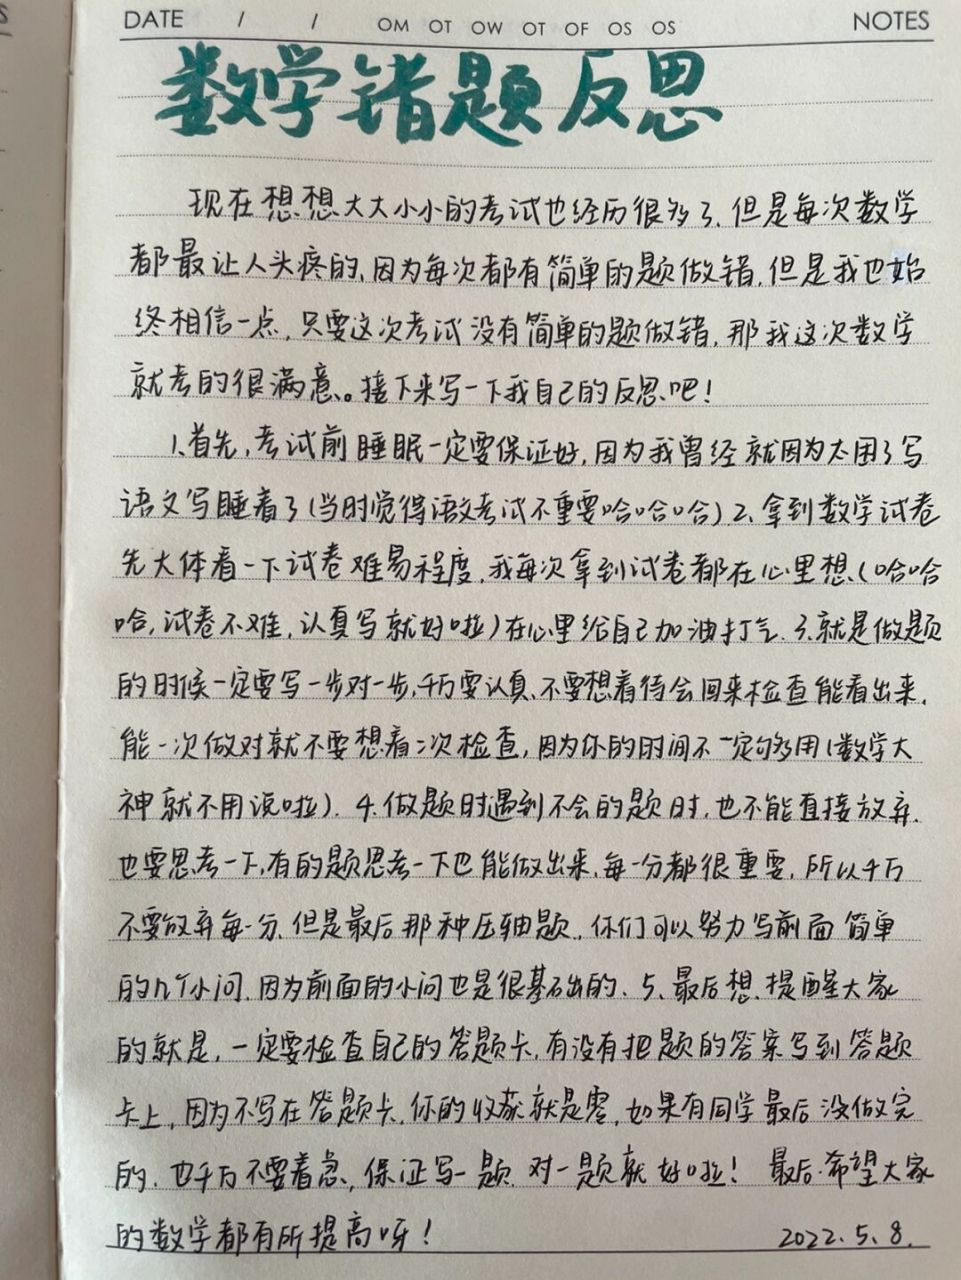 DATE / / OM OT OW OT OF OS OS NOTES
数学错题反思
现在想想大大小小的考试也经历很多了、但是每次数学
都最让人头疼的,因为每次都有简单的题做错,但是我也始
终相信一点,只要这次考试没有简单的题做错,那我这次数学
就考的很满意。接下来写一下我自己的反思吧!
1.首先,考试前睡眠一定要保证好,因为我曾经就因为太困了写
语文写睡着了(当时觉得语文考试不重要哈哈哈)2、拿到数学试卷
先大体看一下试卷难易程度,我每次拿到试卷都在心里想、(哈哈
哈,试卷不难,认真写就好啦)在心里给自己加油打气、3.就是做题
的时候一定要写一步对一步,千万要认真、不要想着待会回来检查能看出来,
能一次做对就不要想着二次检查,因为你的时间不一定够用(数学大
神就不用说啦)、4.做题时遇到不会的题时,也不能直接放弃,
也要思考一下,有的题思考一下也能做出来,每一分都很重要,所以千万
不要放弃每一分、但是最后那种压轴题,你们可以努力写前面简单
的几个小问,因为前面的小问也是很基础的、5、最后想提醒大家
的就是,一定要检查自己的答题卡,有没有把题的答案写到答题
卡上,因为不写在答题卡,你的收获就是零,如果有同学最后没做完
的、也千万不要着急,保证写一题对一题就好啦!最后希望大家
的数学都有所提高呀!2022.5.8.